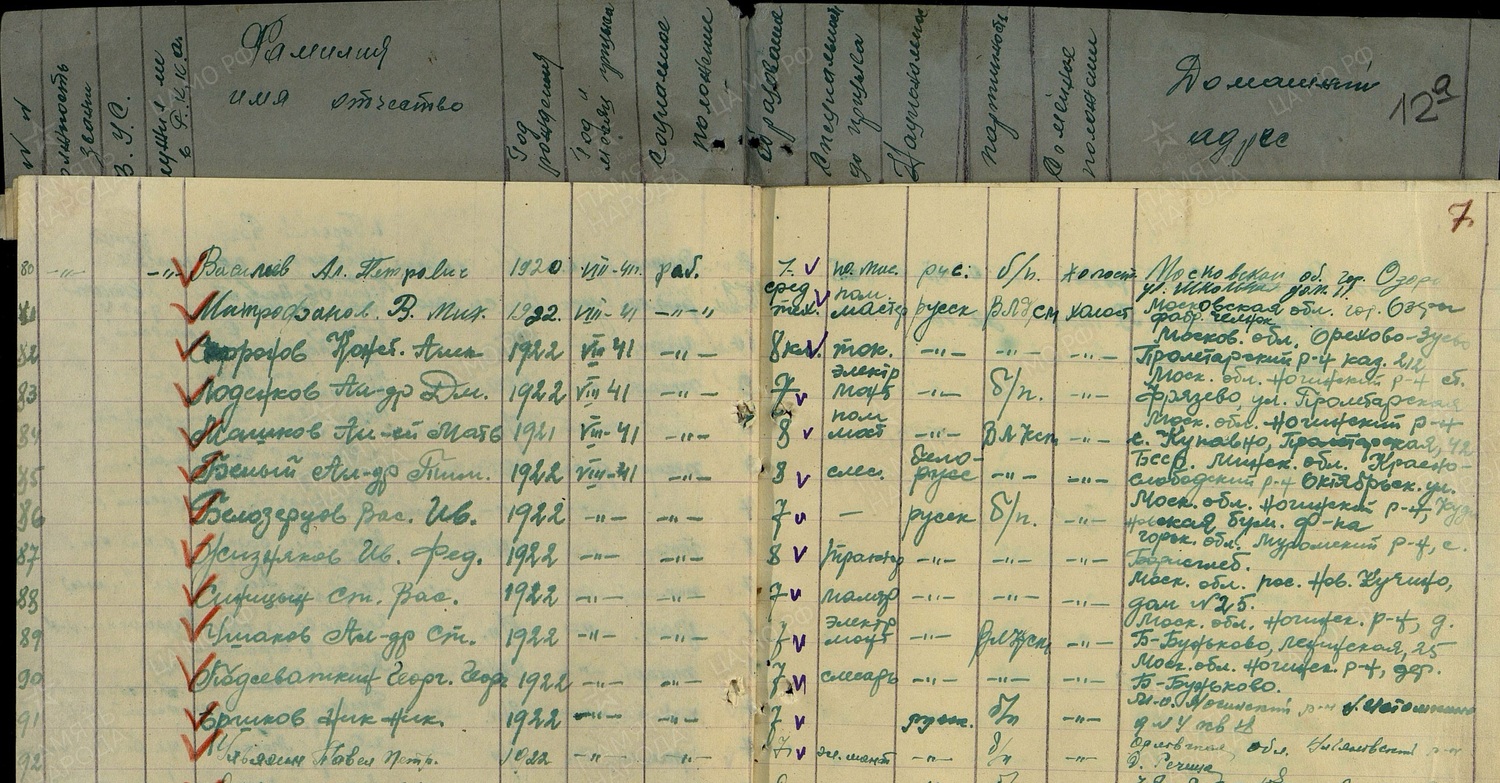 №№
Должность
Звание
В.У.С.
Служил ли
в Р.К.К.А.
Фамилия
имя отчество
Год
рождения
Год и
месяц призыва
Социальное
положение
Образование
Специальность
до призыва
Национальность
партийность
Семейное
положение
Домашний
адрес
12а
7.
80 -"- -"- Васильев Ал. Петрович 1920 VIII-41. раб. 7. по мас. русс. б/п. холост Московская об. гор. Озёры
ул. Школьная дом 11.
Митрофанов. В. Мих. 1922. VIII-41 -"- сред. тех. пом. мастер русск ВЛКСМ холост Московская обл. гор. Озёры
82 Конст. Алек 1922 VIII 41 -"- 8 кл. ток. -"- -"- -"- Москов. обл. Орехово-Зуево
Пролетарский р-н каз. 212
83 Лоденков Ал-др Дм. 1922 VIII 41 -"- 7 электр монт -"- б/п. -"- Моск. обл. Ногинский р-н ст.
Фрязево, ул. Пролетарская
84 Маликов Ал-ей Матв 1921 VIII-41 -"- 8 пом маст -"- ВЛКСМ -"- Моск. обл. Ногинский р-н
с. Купавно, Пролетарская, 42
85 Белый Ал-др Тим. 1922 VIII-41 -"- 8 слес. бело-русс -"- -"- БССР. Минск. обл. Красно-
слободский р-н Октябрьск. ул.
86 Белозерцов Вас. Ив. 1922 -"- -"- 7 — русск б/п. -"- Моск. обл. Ногинский р-н, Куди
новская бум. ф-ка
87 Жизняков Ив. Фед. 1922 -"- -"- 8 трактор -"- -"- -"- Горьк. обл. Муромский р-н, с.
Борисглеб.
88 Синицын Ст. Вас. 1922 -"- -"- 7 маляр -"- -"- -"- Моск. обл. пос. Нов. Кучино,
дом №25.
89 Чишаков Ал-др Ст. 1922 -"- -"- 7 электр монт -"- ВЛКСМ -"- Моск. обл. Ногинск. р-н, д.
Б-Буньково, Ленинская, 25
90 Подсеваткин Георг. Геор 1922 -"- -"- 7 слесарь -"- -"- -"- Моск. обл. Ногинск. р-н, дер.
Б-Буньково.
91 Ершков Ник. Ник. 1922 -"- -"- 7 русск. б/п -"- М-о. Ногинский р-н
92 Павел Петр. 1922 -"- -"- 7 эл. монт -"- б/п -"- Орловская обл. Ульяновский р-н
д. Речица